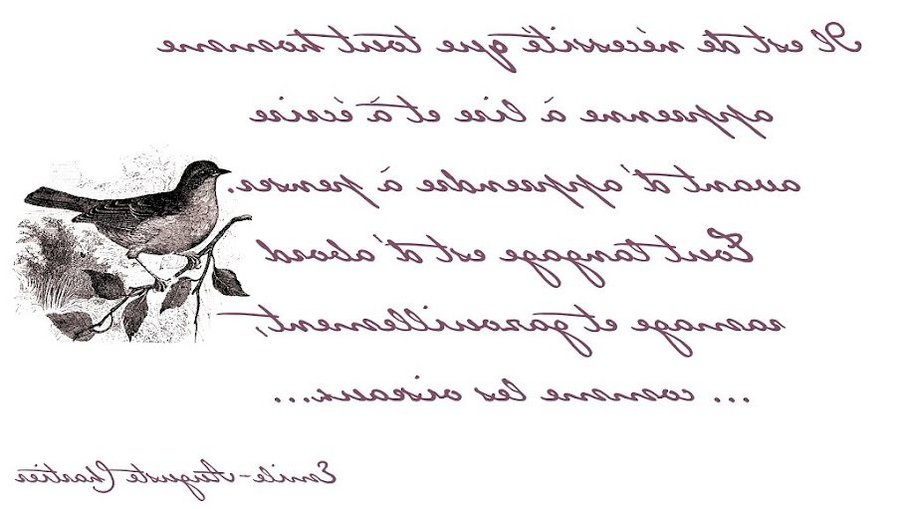 Il est de nécessité que tout homme
apprenne à lire et à écrire
avant d'apprendre à penser.
Tout langage est d'abord
ramage et gazouillement,
... comme les oiseaux...
Emile-Auguste Chartier